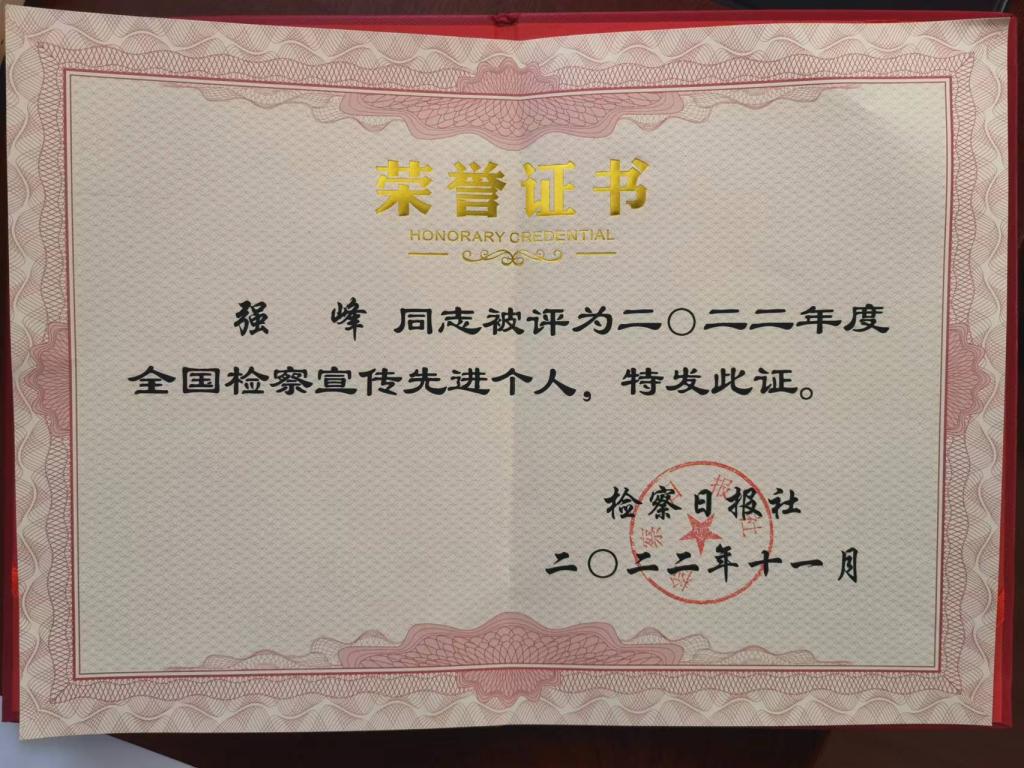 荣誉证书
HONORARY CREDENTIAL
强 峰 同志被评为二〇二二年度
全国检察宣传先进个人，特发此证。
检察日报社
二〇二二年十一月
检察日报社